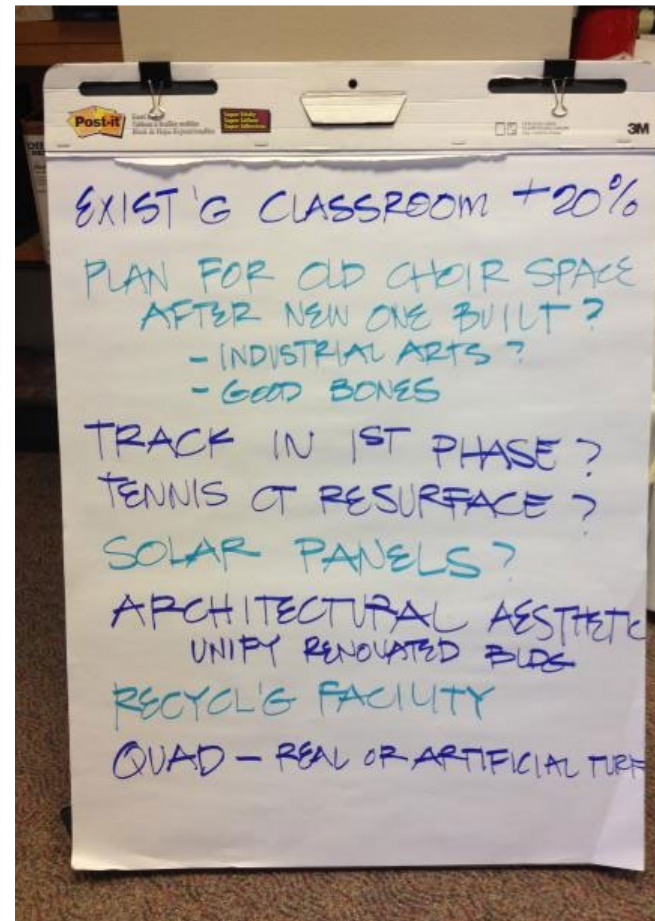 Post-it
Super Sticky
3M
EXIST'G CLASSROOM +20%
PLAN FOR OLD CHOIR SPACE
AFTER NEW ONE BUILT?
- INDUSTRIAL ARTS?
- GOOD BONES
TRACK IN 1ST PHASE?
TENNIS CT RESURFACE?
SOLAR PANELS?
ARCHITECTURAL AESTHETIC
UNIFY RENOVATED BLDG
RECYCL'G FACILITY
QUAD - REAL OR ARTIFICIAL TURF